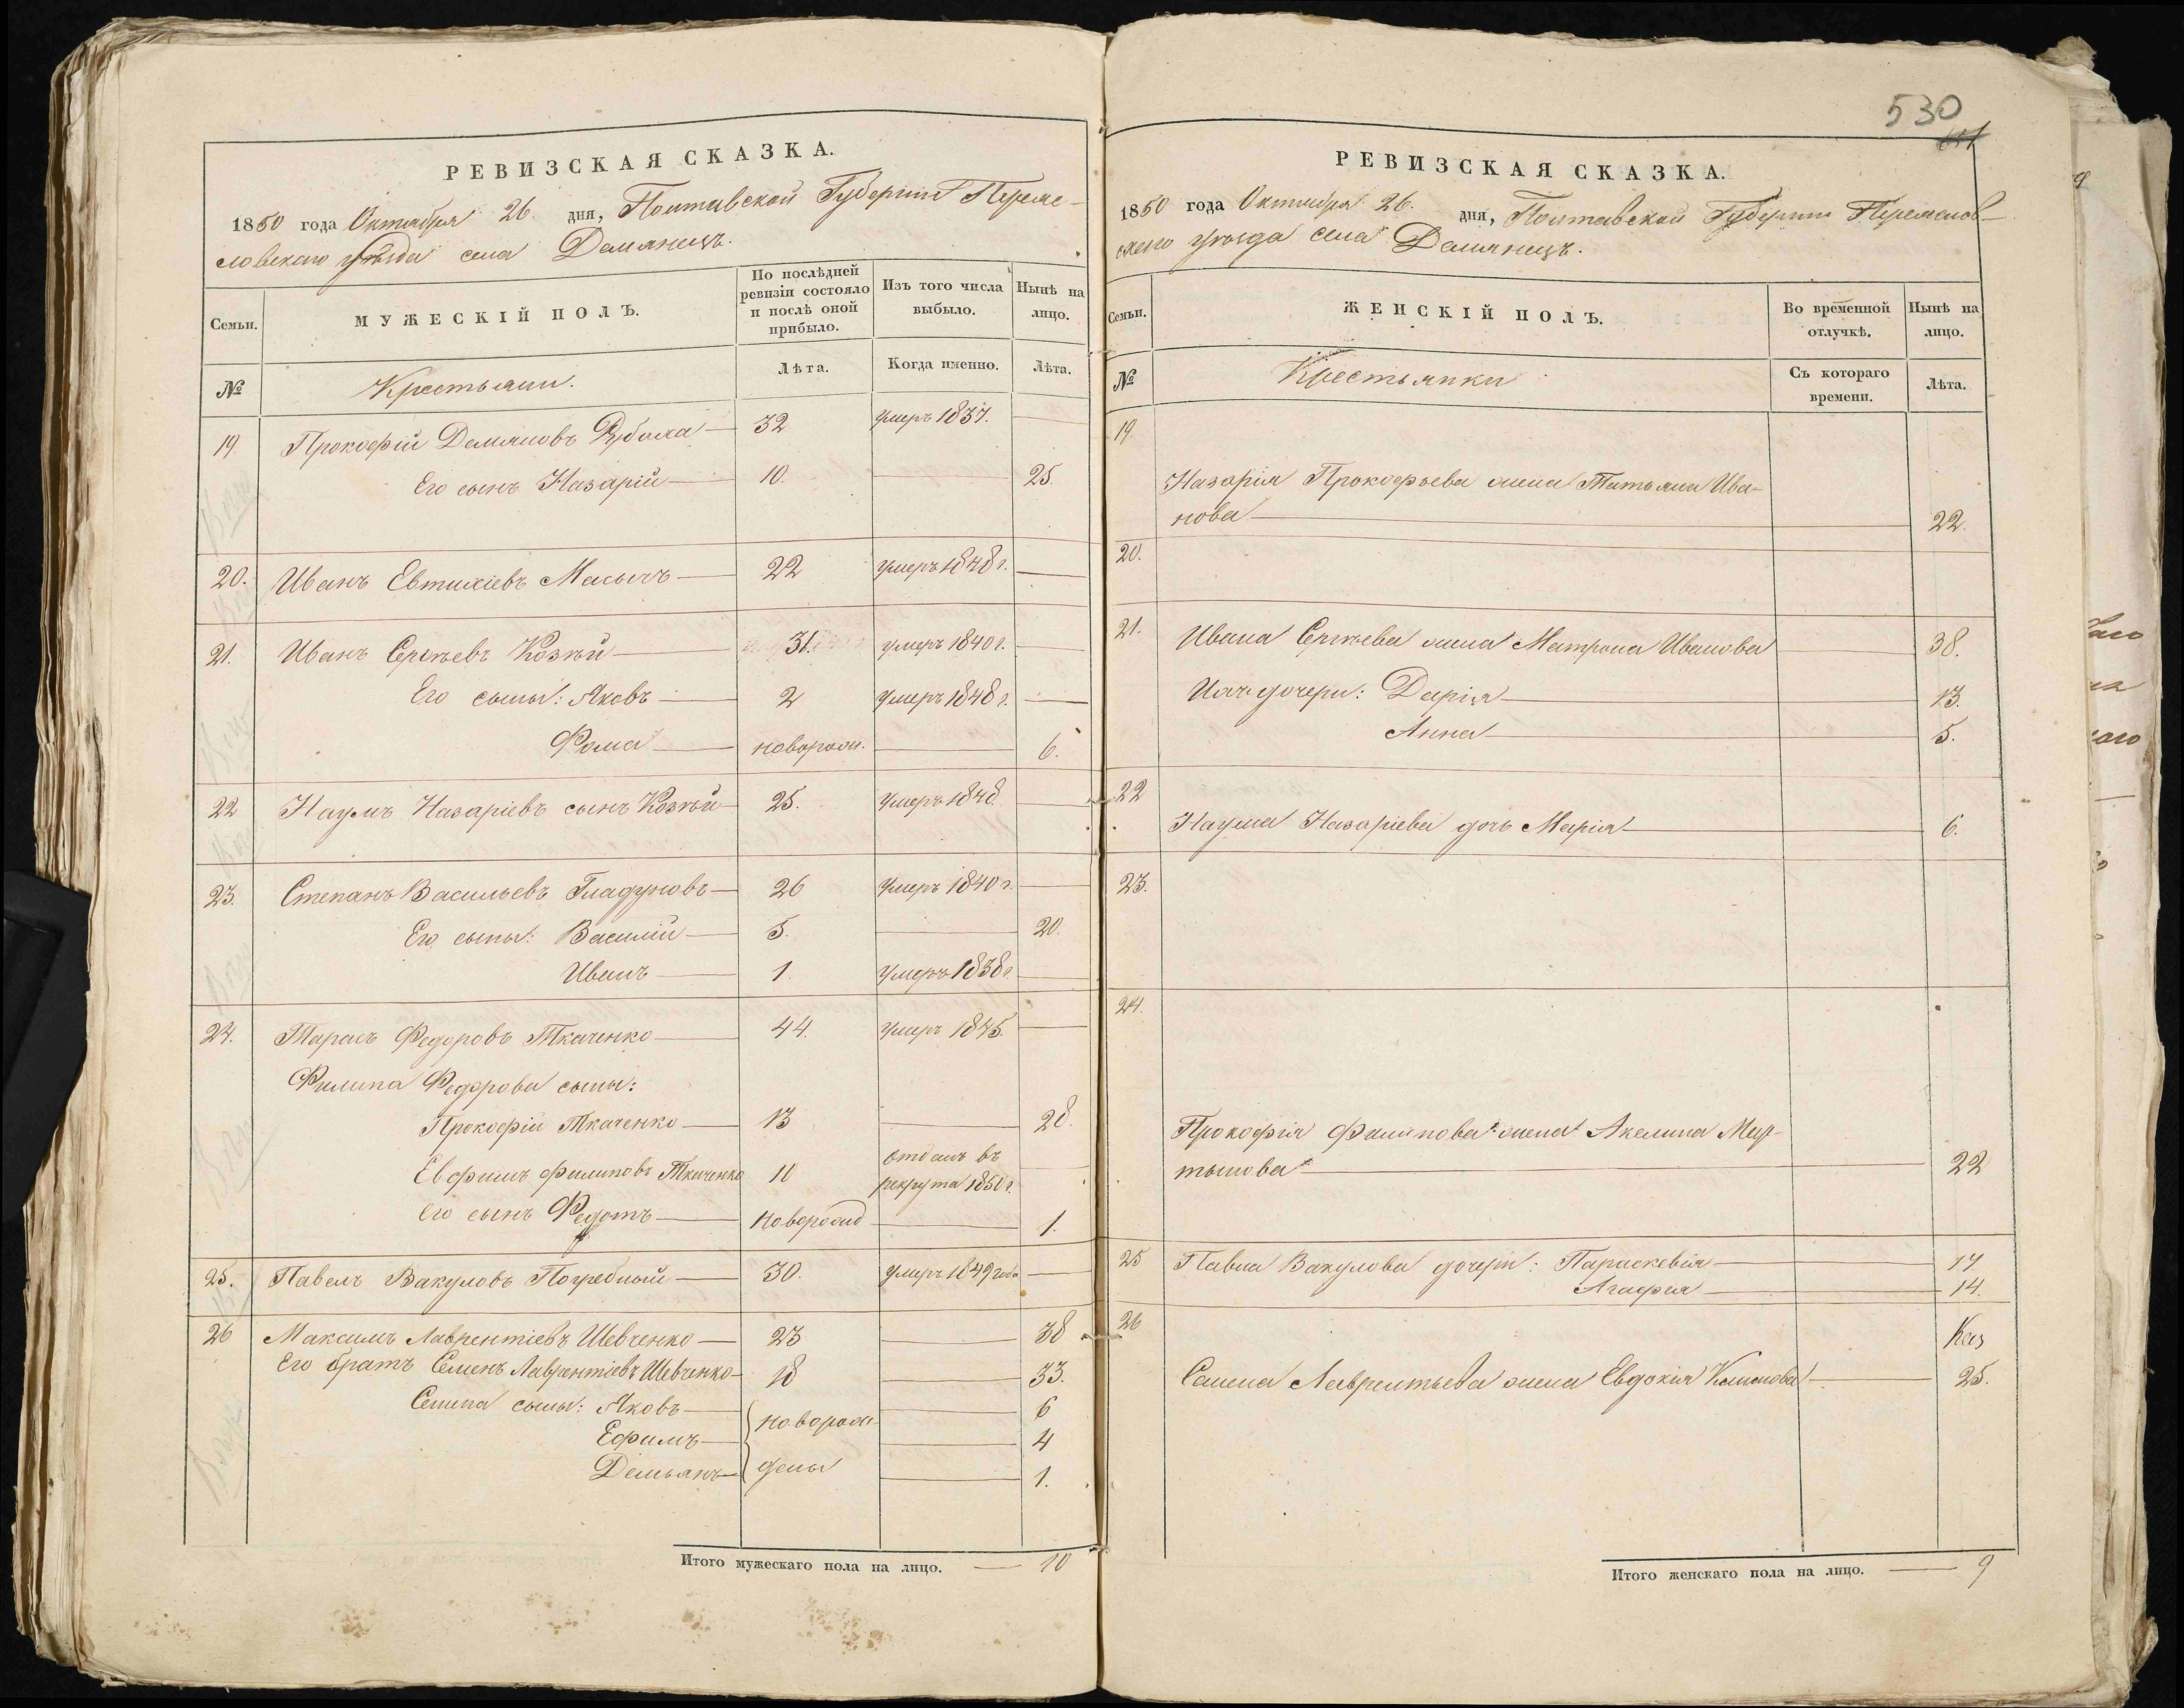 РЕВИЗСКАЯ СКАЗКА.
1850 года Октября 26. дня, Полтавской Губерніи Перея-
словскаго уѣзда села Демянецъ.
Семьи.
МУЖЕСКІЙ ПОЛЪ.
По послѣдней ревизіи состояло и послѣ оной прибыло.
Изъ того числа выбыло.
Нынѣ на лицо.
№
Крестьяни.
Лѣта.
Когда именно.
Лѣта.
19. Прокофій Демяновъ — 32 умеръ 1837. —
Его сынъ Назарій — 10. — 25.
20. Иванъ Евтихіевъ — 22 умеръ 1848 г. —
21. Иванъ Сергѣевъ Козѣй — 31. умеръ 1840 г. —
Его сыны: Яковъ — 2 умеръ 1848 г. —
Фома — новорож. — 6.
22 Наумъ Назаріевъ сынъ Козѣй — 25. умеръ 1848. —
23. Степанъ Васильевъ Гладуновъ — 26 умеръ 1840 г. —
Его сыны: Василій — 5. — 20.
Иванъ — 1. умеръ 1838 г. —
24. Тарасъ Федоровъ Ткаченко — 44. умеръ 1845. —
Филипа Федорова сыны:
Прокофій Ткаченко — 13 — 28.
Евфимъ Филиповъ Ткаченко 11 отданъ въ
рекрута 1850 г.
его сынъ Федотъ — новорожд — 1.
25. Павелъ Вакуловъ Погребный — 30. умеръ 1849 года —
26 Максимъ Лаврентіевъ Шевченко — 23 — 38
Его братъ Семенъ Лаврентіевъ Шевченко — 18 — 33.
Семена сыны: Яковъ — новорож- — 6
Ефимъ — — 4
Демьянъ — дены — 1.
Итого мужескаго пола на лицо. — 10
530
РЕВИЗСКАЯ СКАЗКА.
1850 года Октября 26. дня, Полтавской Губерніи Переяслов-
скаго уѣзда села Демянецъ.
Семьи.
ЖЕНСКІЙ ПОЛЪ.
Во временной отлучкѣ.
Нынѣ на лицо.
№
Крестьянки
Съ котораго времени.
Лѣта.
19.
Назарія Прокофьева жена Татьяна Ива-
нова — 22.
20.
21. Ивана Сергѣева жена Матрона Иванова — 38.
Ихъ дочери: Дарія — 13.
Анна — 5.
22
Наума Назаріева дочь Марія — 6.
23.
24.
Прокофія Филипова жена Акелина Мар-
тынова — 22
25 Павла Вакулова дочери: Параскевія — 17
Агафія — 14.
26
Семена Лаврентьева жена Евдокія Климова — 25.
Итого женскаго пола на лицо. — 9